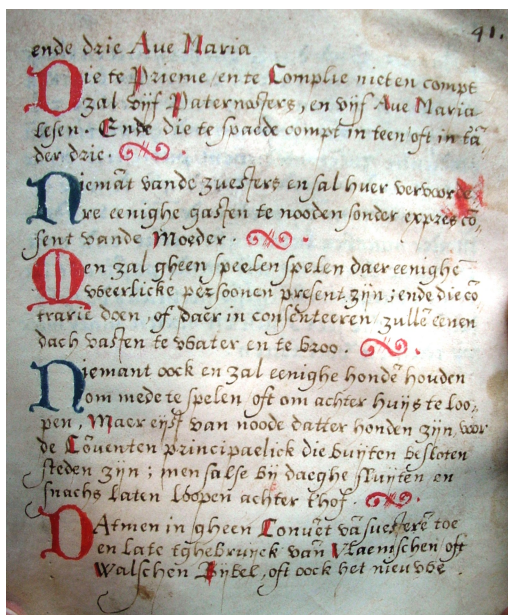 41.
ende drie Ave Maria
Die te Prieme, en te Complie niet en compt
zal vijf Paternosters, en vijf Ave Maria
lesen. Ende die te spaede compt in teen, oft in tā
der drie.
Niemāt vande zuesters en sal huer vervoorde
re eenighe gasten te nooden sonder expres cō,
sent vande Moeder.
Men zal gheen speelen spelen daer eenighe
weerlicke persoonen present zijn; ende die cō
trarie doen, of daer in consenteeren, zullē eenen
dach vasten te water en te broo.
Niemant oock en zal eenighe hondē houden
om mede te spelen oft om achter huijs te loo,
pen, Maer eijst van noode datter honden zijn, voor
de Cōuenten principaelick die buijten besloten
steden zijn; men salse bij daeghe sluijten en
snachs laten loopen achter thof.
DAtmen in gheen Convēt vā suesterē toe
en late tghebruijck van Vlaemschen oft
Walschen Bijbel, oft oock het nieuwe